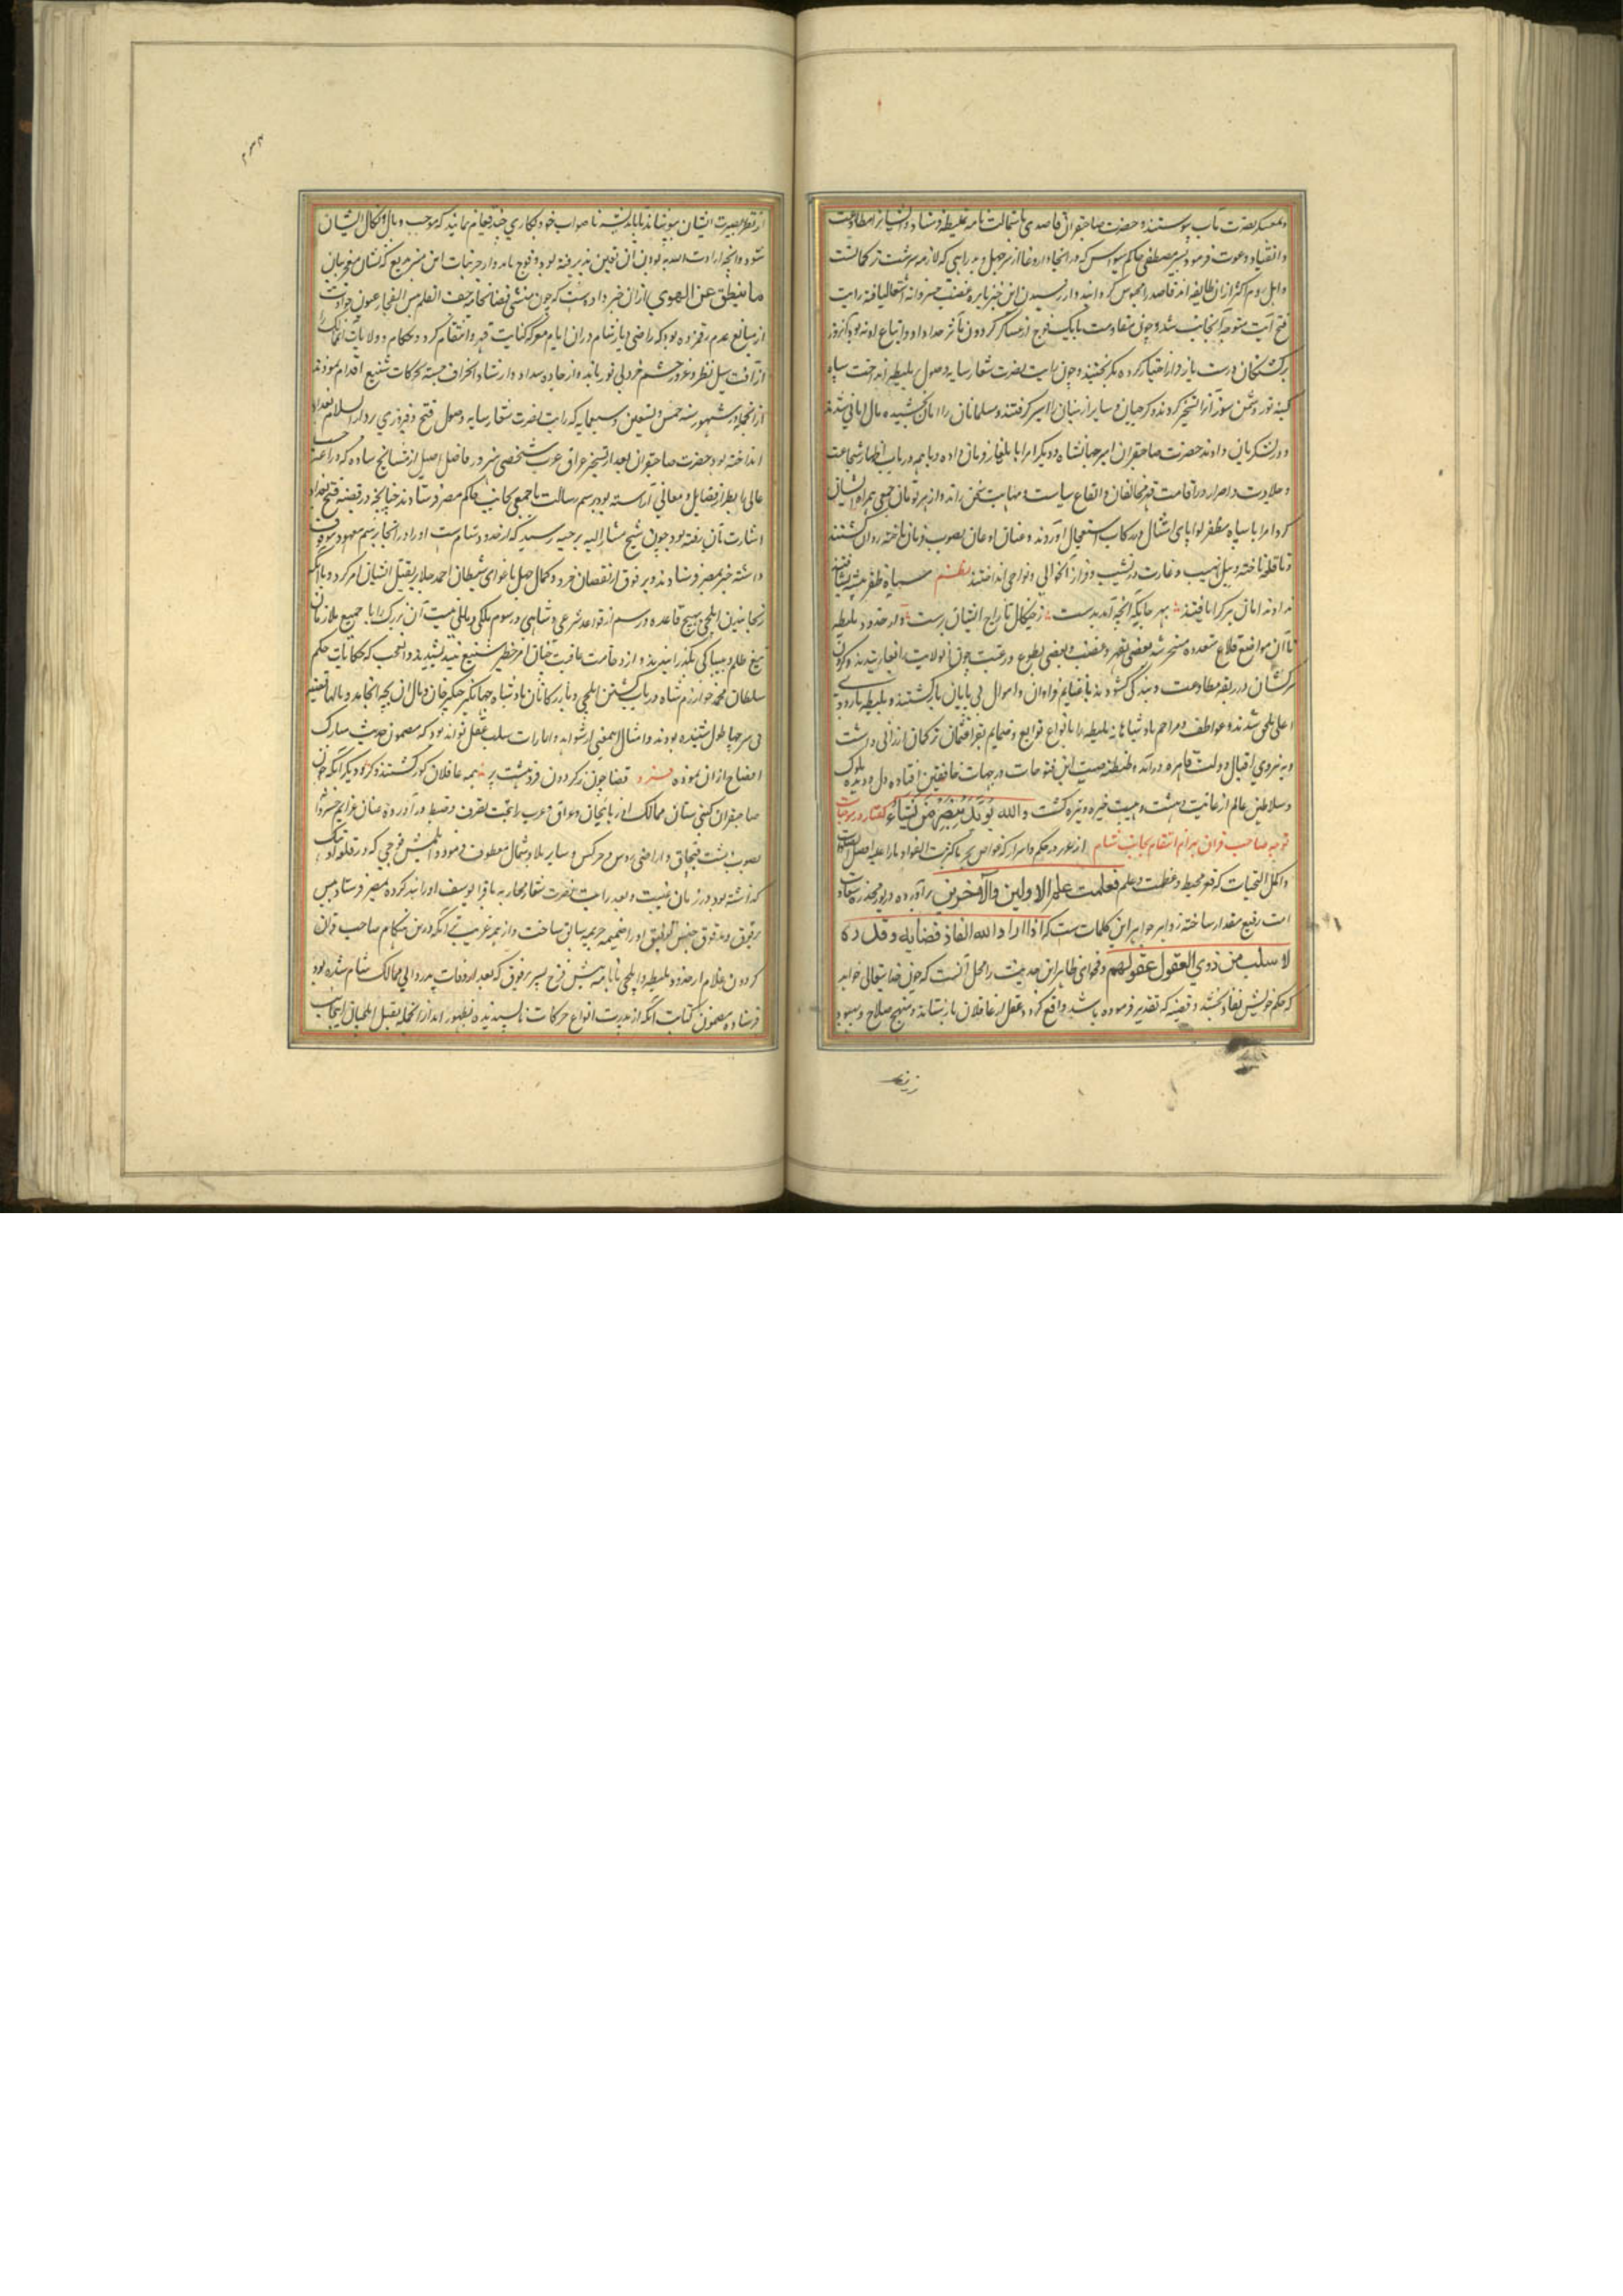 و بمعسکر نصرت مآب پیوستند و حضرت صاحبقران قاصدی با ستمالت نامه بملیطه فرستاد و ایشانرا بمطاوعت
و انقیاد دعوت فرمود پسر مصطفی حاکم سیواس که در آنجا داروغا از سر جهل و بد رایی که لازمه سرشت ترکمانست
و اهل روم اکثر از آن طایفه اند قاصد را محبوس گردانید و از رسیدن این خبر نایره غضب خسروانه اشتعال یافته رایت
فتح آیت متوجه آنجانب شد و چون مقاومت با یک فوج از عساکر گردون مآثر حد او و اتباع او نبود آنروز
برگشتگان درست باز فرار اختیار کرده بگریختند و چون رایت نصرت شعار سایه وصول بملیطه انداخت سپاه
کینه توز دشمن سوز آنرا تسخیر کردند و گرجیان و سایر ارمنیان را اسیر گرفتند و مسلمانان را امان بخشیده مال امانی ستدند
و بلشکریان دادند حضرت صاحبقران امیر جهانشاه و دیگر امرا را بایلغار فرمان داده و با همه در باب اظهار شجاعت
و جلادت و اصرار در اقامت قهر مخالفان و ایقاع سیاست و مهابت سخن راند و از هر تومان جمعی همراه ایشان
کرد امرا با سپاه مظفر لوا پای امتثال در رکاب استعجال آوردند و عنان اذعان بصوب فرمان تافته روان گشتند
و تا قلعه تاخته و سیل نهیب و غارت در نشیب و فراز آنحوالی و نواحی انداختند نظم سپاه ظفر پیشه بشتافتند
ندادند امان هرکرا یافتند بهر جایگه آنچه آمد بدست ز چنگال تاراج ایشان نرست و از حدود ملیطه
تا آن مواضع قلاع متعدده مسخر شد بعضی بقهر و غضب و بعضی بطوع و رغبت چون آنولایت
سرکشان در ربقه مطاوعت و بندگی کشودند با غنایم فراوان و اموال بی پایان بازگشتند و بملیطه باردوی
اعلی ملحق شدند و عواطف و مراحم پادشاهانه ملیطه را با نواع توابع و ضمایم بقرا عثمان ترکمان ارزانی داشت
و به نیروی اقبال دولت قاهره در آمد و طنطنه صیت این فتوحات در جهات خافقین افتاده دل و دیده ملوک
و سلاطین عالم از غایت دهشت و هیبت خیره و تیره گشت والله یؤید بنصره من یشاء گفتار در موجبات
توجه صاحب قران بعزم انتقام بجانب شام از غرر درر حکم و اسرار که غواص بحر ما کذب الفواد ما رای علیه افضل الصلوة
و اکمل التحیات که قعر محیط و عظمت و علم فعلمت علم الاولین والآخرین برآورده و زیور مخدره سعادت
امت رفیع مقدار ساخته زواهر جواهر این کلمات ست که اذا اراد الله انفاذ قضایه و قدره
سلب من ذوی العقول عقولهم و فحوای ظاهر این حدیث را محمل آنست که چون خدایتعالی خواهد
که حکم خویش نفاذ بخشد و قضیه که تقدیر فرموده باشد واقع گردد عقل از عاقلان باز ستاند و منهج صلاح و بهبود
از نظر بصیرت ایشان بپوشاند تا باندیشه ناصواب خود بکاری چند قیام نمایند که موجب وبال و نکال ایشان
شود و آنچه ارادت الله بوقوع آن تعین پذیرفته بود بوقوع یابد و از جزئیات این سر بدیع که لسان معجز بیان
ما ینطق عن الهوی از آن خبر داده است که چون منشی قضا
از آفت سبل نظر و عور چشم خرد بی نور مانده از جاده سداد و ارشاد انحراف جسته بحرکات شنیع اقدام نمودند
از آنجمله در شهور سنه خمس و تسعین و سبعمایه که رایت نصرت شعار سایه وصول فتح و فیروزی بر دار السلام بغداد
انداخته بود حضرت صاحبقران بعد از تسخیر عراق عرب شخصی هنرور فاضل اصیل از مشایخ ساوه که در
عالی بطراز فضایل و معانی آراسته بود برسم رسالت با جمعی بجانب حاکم مصر فرستاد چنانچه در قضیه فتح بغداد
اشارت بآن رفته بود چون شیخ مشار الیه برحبه رسید که از حدود شام است او را در آنجا برسم معهود موقوف
داشته خبر بمصر فرستادند و برقوق از نقصان خرد و کمال جهل باغوای شیطان احمد جلایر بقتل ایشان امر کرد و با آنکه
رنجانیدن ایلچی بهیچ قاعده و رسم از قواعد شرعی و شاهی و رسوم ملکی و مالی نیست آن بزرگ را با جمیع ملازمان
بتیغ ظلم و بیباکی بگذرانیدند و از وخامت عاقبت چنان امر خطیر شنیع نیندیشیدند و العجب که حکایات حکم
سلطان محمد خوارزم شاه در باب کشتن ایلچی و بازرگانان پادشاه جهانگیر چنگیز خان و مال آن بچه انجامید و
فی سرحها طول شنیده بودند و امثال این معنی از شواهد و امارات سلب عقل تواند بود که مضمون حدیث مبارک
افصاح از آن نموده فرد قضا چون ز گردون فروهشت پر همه عاقلان کور گشتند و کر و دیگر آنکه چون
صاحبقران گیتی ستان ممالک آذربایجان و عراق عرب را بتحت تصرف و ضبط در آورده عنان عزایم خسروانه
بصوب دشت قبچاق و اراضی روس و چرکس و سایر بلاد شمال معطوف فرمود و اتلمیش قوجی که در قلعه اونیک
گذاشته بود در زمان غیبت و بعد رایت نصرت شعار محاربه با قرا یوسف او را بند کرده بمصر فرستاد پس
برقوق
گردون غلام از حدود ملیطه ایلچی با نامه پیش فرج پسر برقوق که بعد از وفات پدر والی ممالک شام شده بود
فرستاده مضمون کتابت آنکه از پدرت انواع حرکات ناپسندیده بظهور آمد از آنجمله بقتل ایلچیان اینجانب
زنظر